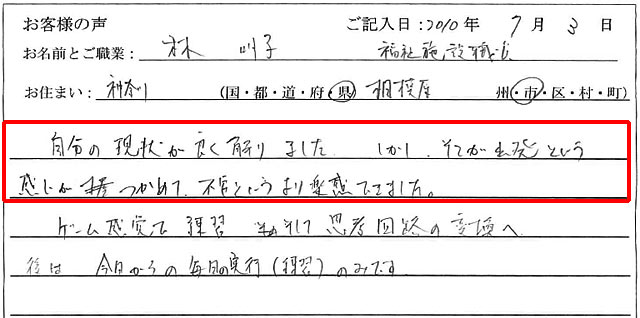 お客様の声 ご記入日：2010年 7月 3日
お名前とご職業： 林 子 福祉施設職員
お住まい： 神奈川 (国・都・道・府・県) 相模原 州・市・区・村・町)
自分の現状が良く解りました しかし、そこが出発という
感じが掴つかめて、不安というより楽しできました。
ゲーム感覚で練習 そして思考回路の変換へ
後は 今日からの毎日の実行(練習)のみです